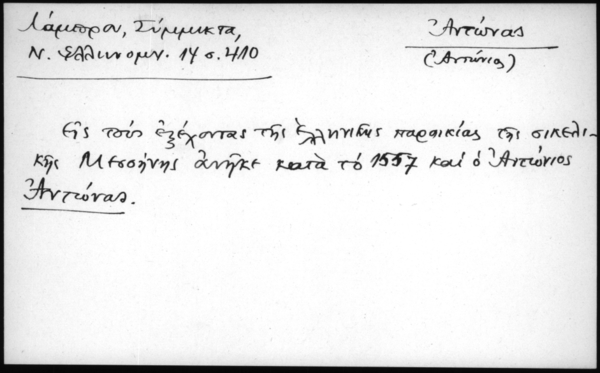 Λάμπρου, Σύμμικτα,
Ν. Ἑλληνομν. 14 σ. 410
Ἀντώνας
(Ἀντώνιος)
Εἰς τοὺς ἐξέχοντας τῆς ἑλληνικῆς παροικίας τῆς σικελι-
κῆς Μεσσήνης ἀνῆκε κατὰ τὸ 1557 καὶ ὁ Ἀντώνιος
Ἀντώνας.